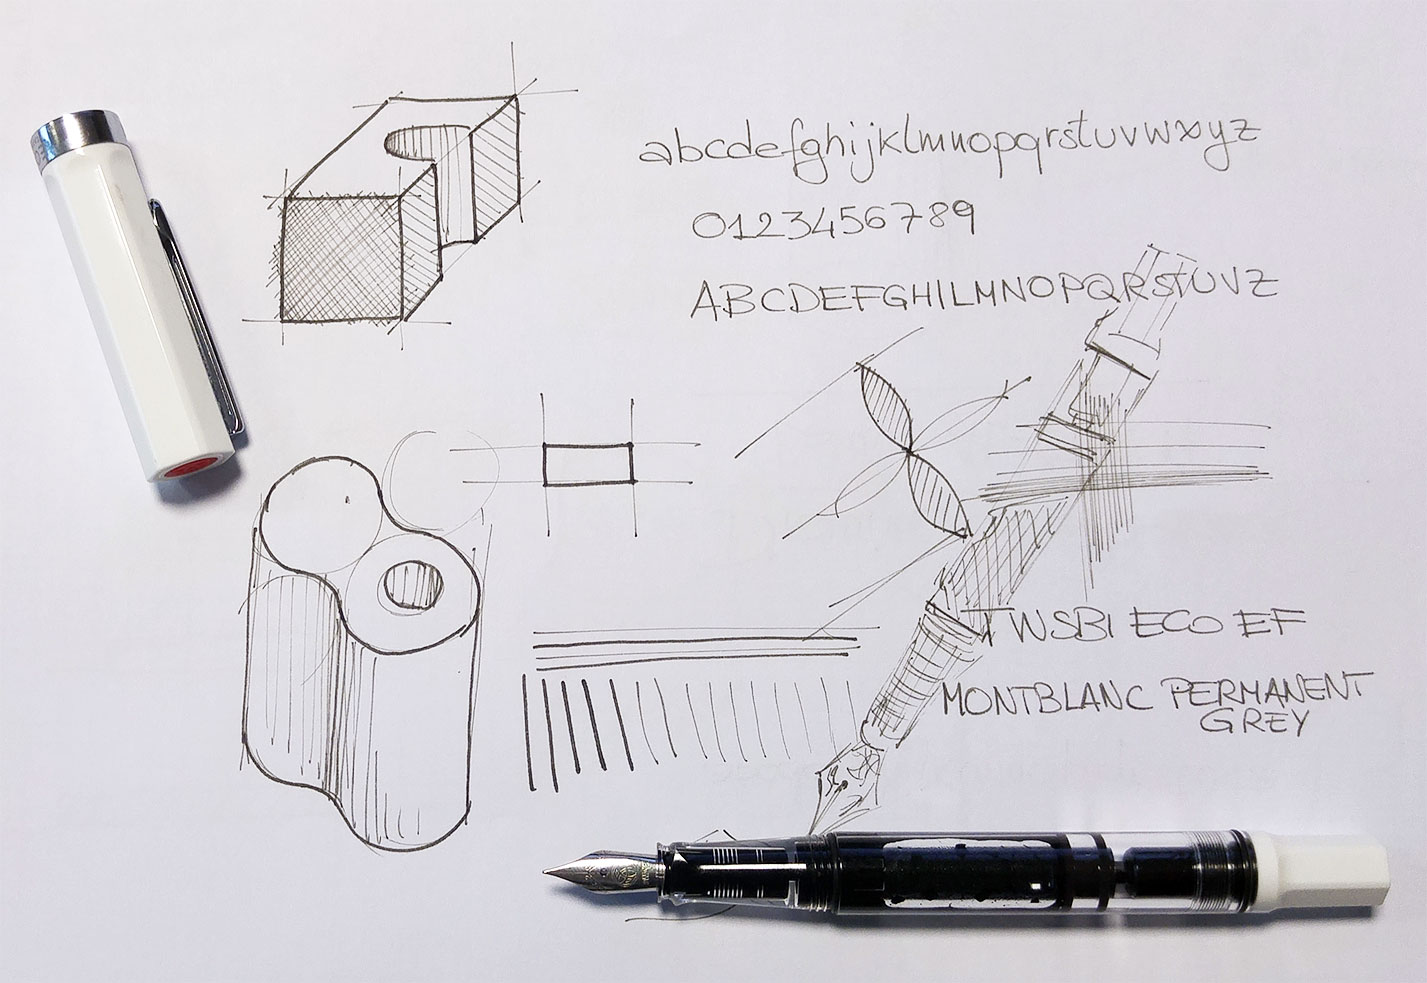 abcdefghijklmnopqrstuvwxyz
0123456789
ABCDEFGHILMNOPQRSTUVZ
TWSBI ECO EF
MONTBLANC PERMANENT
GREY